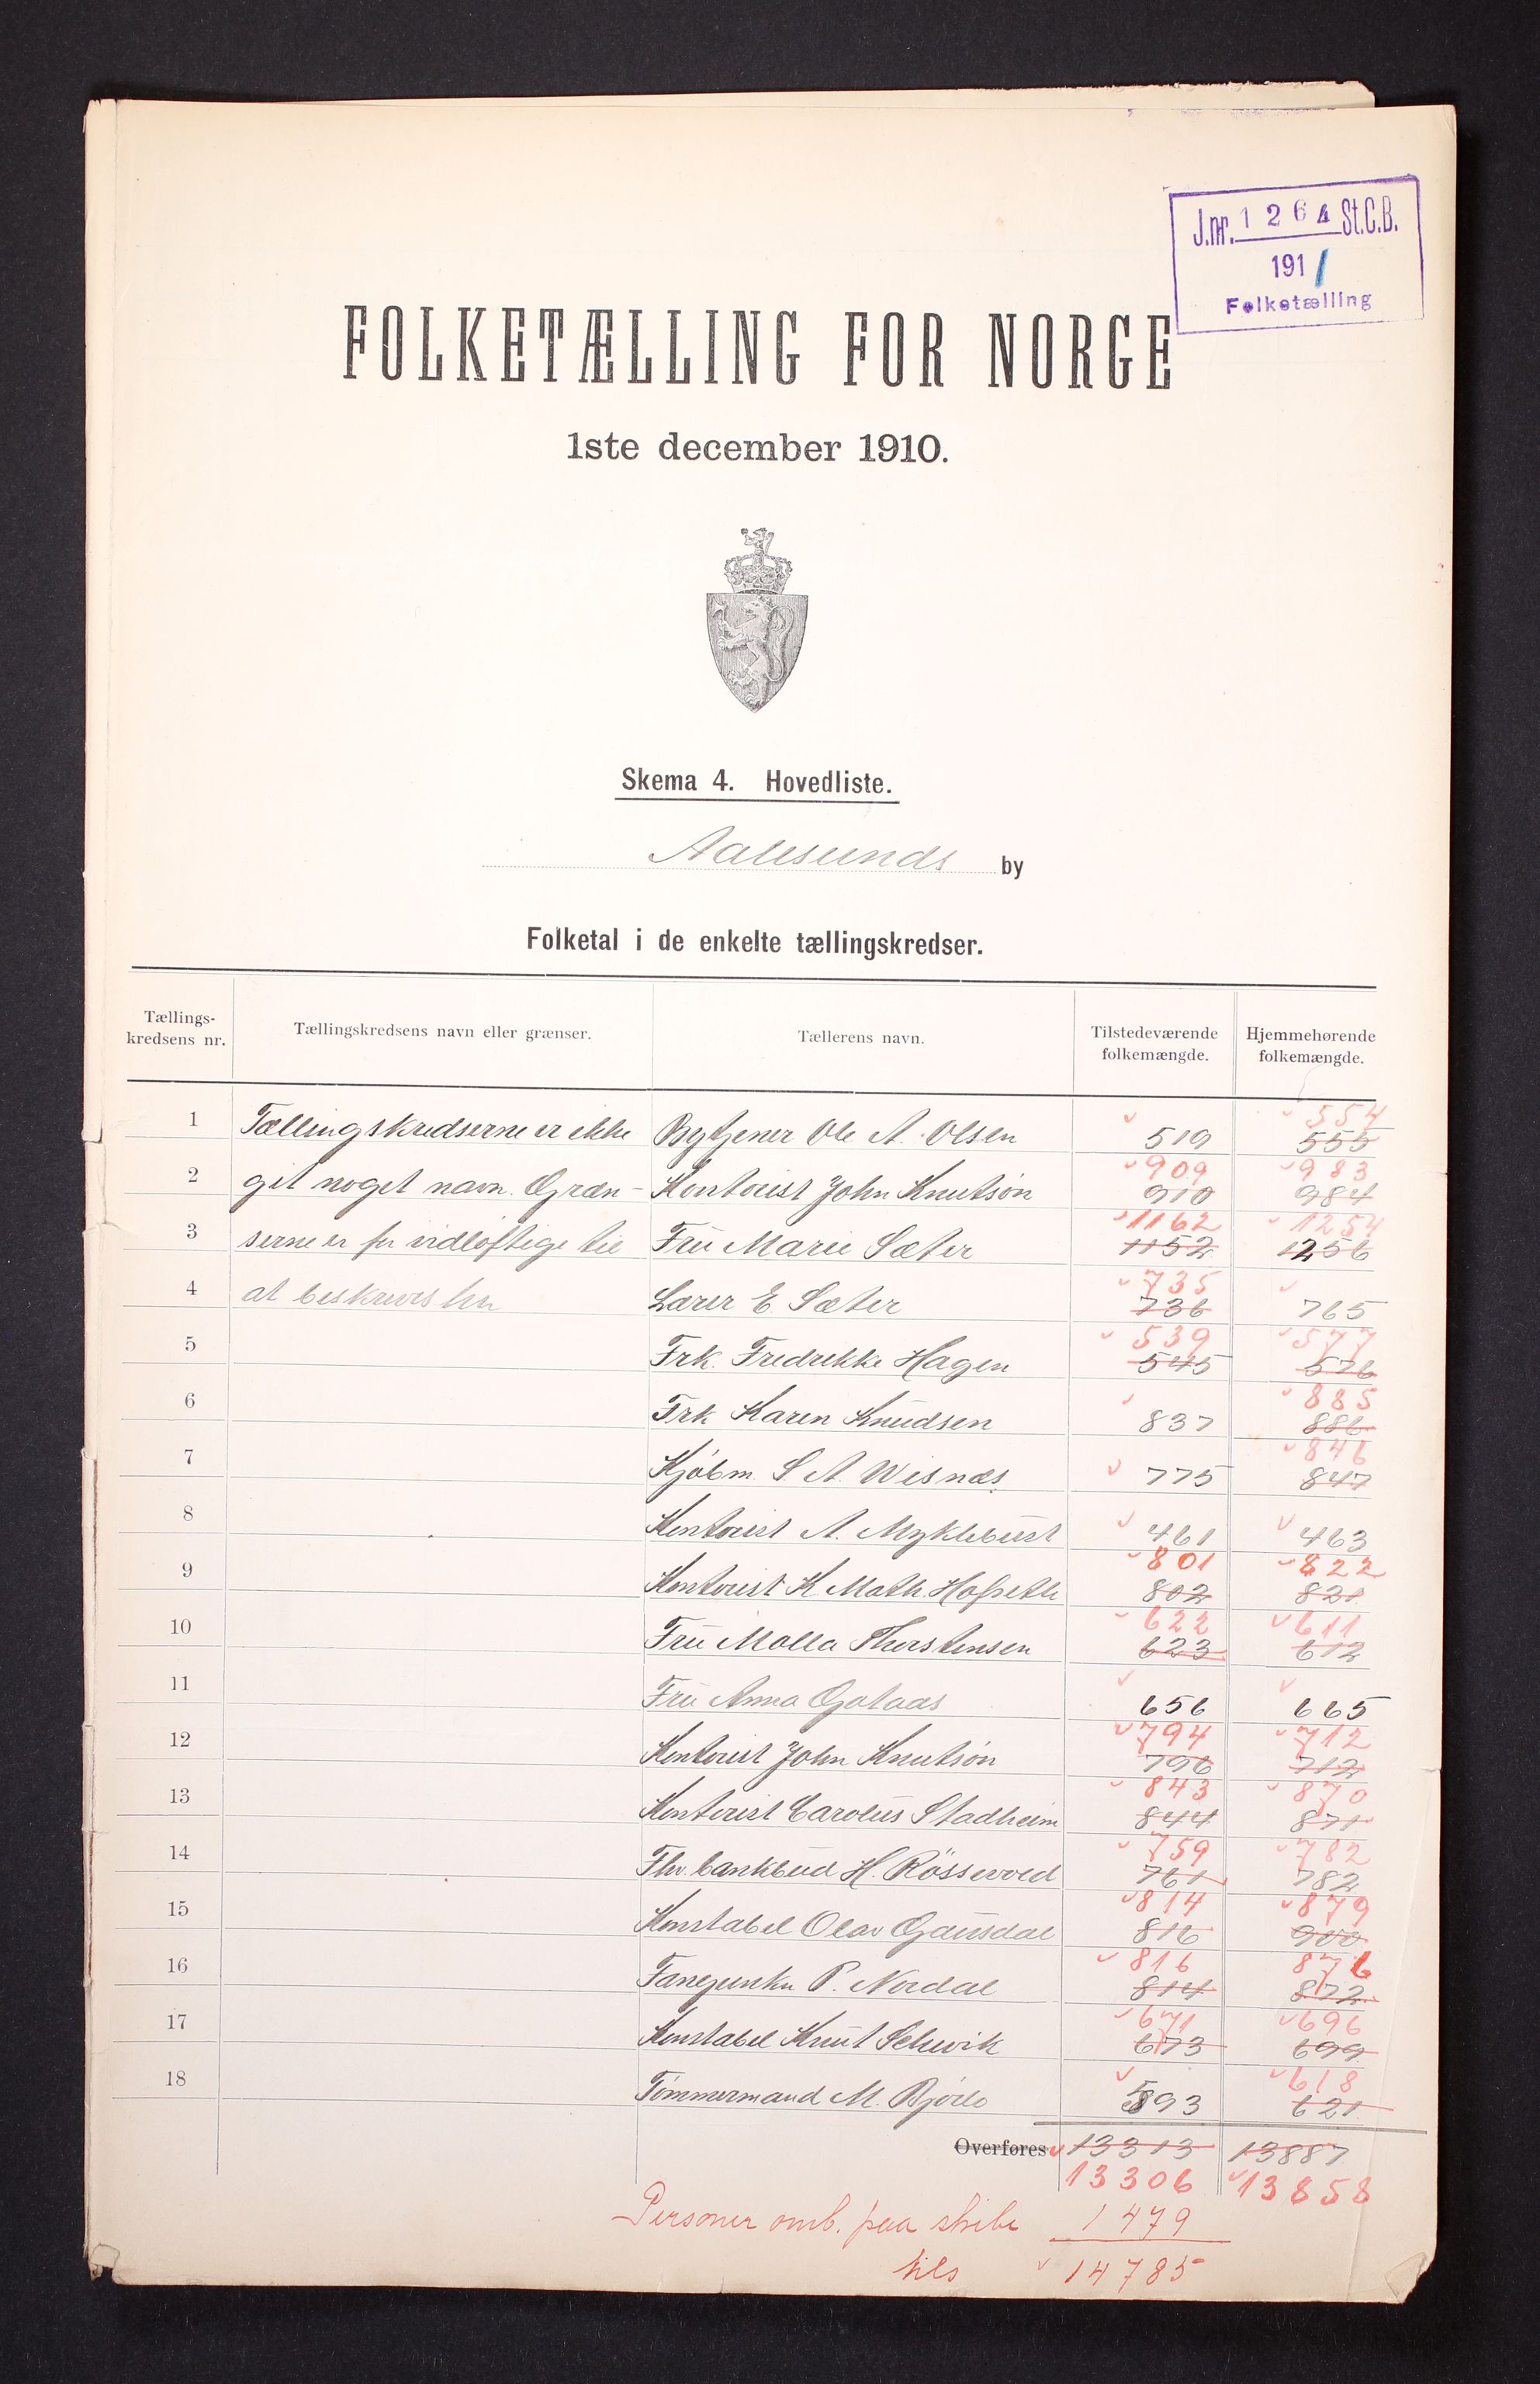 J.nr. 1264 St.C.B.
1911
Folketælling
FOLKETÆLLING FOR NORGE
1ste december 1910.
Skema 4. Hovedliste.
Aalesunds by
Folketal i de enkelte tællingskredser.
Tællings-kredsens nr. Tællingskredsens navn eller grænser. Tællerens navn. Tilstedeværende folkemængde. Hjemmehørende folkemængde.
554
1 Tællingskredserne er ikke Bytjener Ole A. Olsen 519 555
909 983
2 git noget navn. Græn- Kontorist John Knutsøn 910 984
1162 1254
3 serne er for vidløftige til Fru Marie Sæter 1152 1256
735
4 at beskrives her Lærer E. Sæter 736 765
539 577
5 Frk. Fredrikke Hagen 545 576
885
6 Frk Karen Knudsen 837 886
846
7 Kjøbm. S. A. Wisnæs 775 847
8 Kontorist A. Myklebust 461 463
801 822
9 Kontorist K Math. Hofseth 802 821
622 611
10 Fru Molla Thorstensen 623 612
11 Fru Anna Gotaas 656 665
794 712
12 Kontorist John Knutsøn 796 712
843 870
13 Kontorist Carolus Stadheim 844 871
759 782
14 Fhv. bankbud H. Røssevold 761 782
814 879
15 Konstabel Olav Gausdal 816 900
816 876
16 P. Nordal 814 872
671 696
17 Konstabel Knut Selvik 673 699
618
18 Tømmermand M. Bjørlo 593 621
Overføres 13313 13887
13306 13858
Personer omb. paa skibe 1479
tils 14785